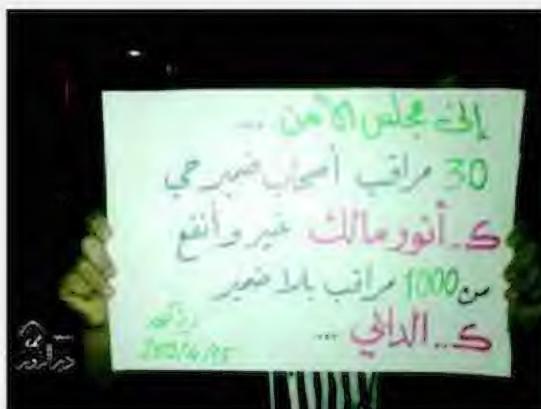 إلى مجلس الأمن ...
30 مراقب أصحاب ضمير حي
كـ.. أنور مالك خير وأنفع
من 1000 مراقب بلا ضمير
كـ.. الدابي ...
دير الزور